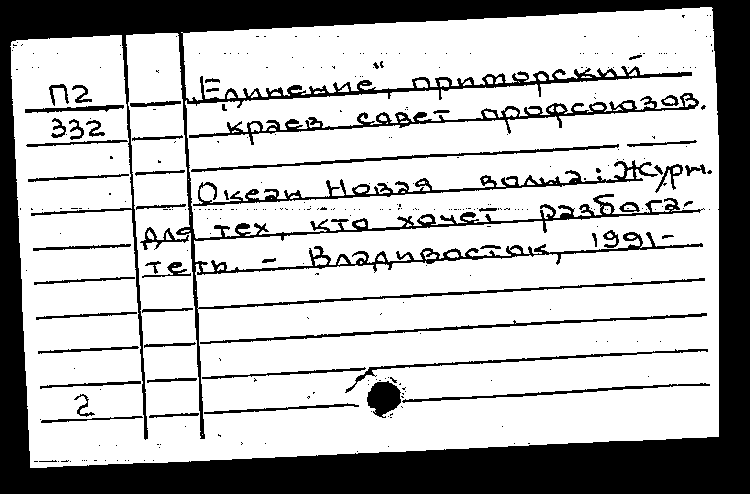 П2 „Единение", приморский
332 краев. совет профсоюзов.
Океан. Новая волна: Журн.
для тех, кто хочет разбога-
теть. - Владивосток, 1991-
2